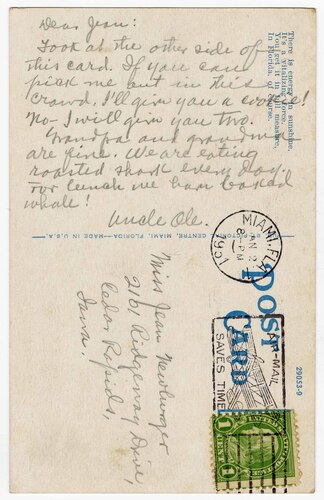 Dear Jean:
Look at the other side of
this card. If you can
pick me out in this
crowd. I'll give you a cookie!
No - I will give you two.
Grandpa and grandma
are fine. We are eating
roasted shark every day,
for lunch we have baked
whale!
Uncle Ole.
There is energy in sunshine,
It's a vitalizing force,
You get it in full measure,
In Florida, of course.
CENTRE, MIAMI, FLORIDA—MADE IN U.S.A.
MIAMI, FLA.
8-PM
1931
POST
CARD
AIR-MAIL
SAVES TIME
29053-9
Miss Jean
2161 Ridgeway Drive,
Cedar Rapids,
Iowa.
1 CENT 1